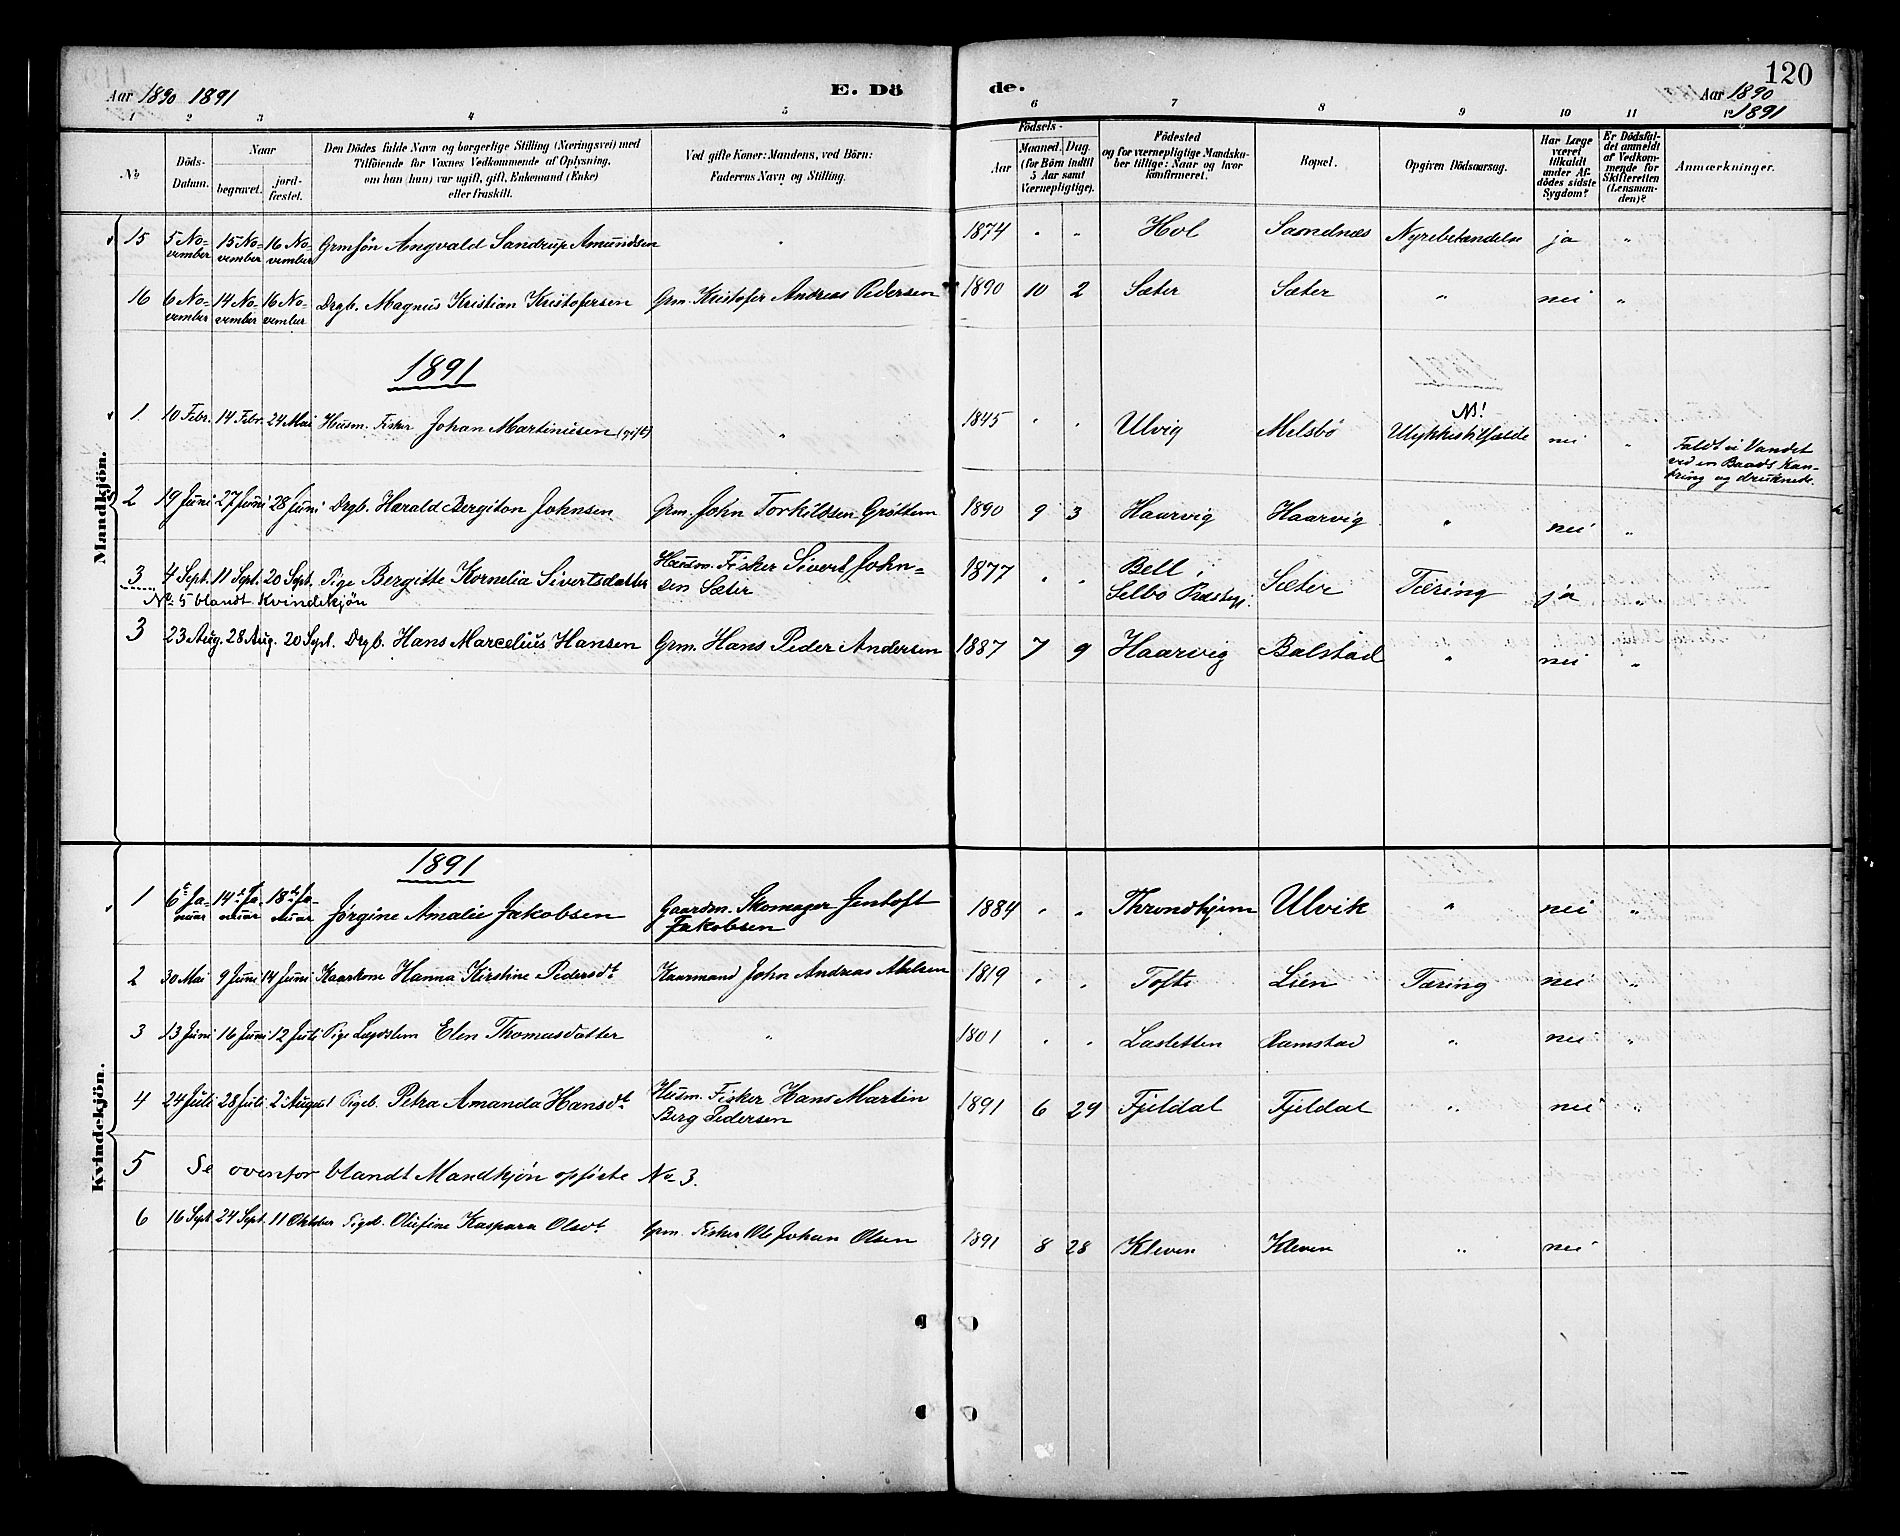 120
Aar 1890 1891
E. Dö
de.
Aar 1890
1891
1 2 3 4 5 6 7 8 9 10 11 12
No
Döds-
Datum.
Naar
begravet.
jord-
fæstet.
Den Dödes fulde Navn og borgerlige Stilling (Næringsvei) med
Tilföiende for Voxnes Vedkommende af Oplysning,
om han (hun) var ugift, gift, Enkemand (Enke)
eller fraskilt.
Ved gifte Koner: Mandens, ved Börn:
Faderens Navn og Stilling.
Födsels-
Aar
Maaned. Dag.
(for Börn indtil
5 Aar samt
Værnepligtige).
Födested
og for værnepligtige Mandska-
ber tillige: Naar og hvor
konfirmeret.
Bopæl.
Opgiven Dödsaarsag.
Har Læge
været
tilkaldt
under Af-
dödes sidste
Sygdom?
Er Dödsfal-
det anmeldt
af Vedkom-
mende for
Skifteretten
(Lensman-
den)?
Anmærkninger.
Mandkjön.
15 5 No- 15 No- 16 No- Grmsøn Angvald Sandrup Amundsen " 1874 " " Hol Sandnæs Nyrebetændelse ja "
vember vember vember
16 6 No- 14 No- 16 No- Drgb. Magnus Kristian Kristofersen Grm. Kristofer Andreas Pedersen 1890 10 2 Sæter Sæter " nei "
vember vember vember
1891
1 10 Febr. 14 Febr. 24 Mai Husm. Fisker Johan Martinusen (gift) " 1845 " " Ulvig Melsbö NB! Ulykkestilfælde nei " Faldt i Vandet
ved en Baads Kan-
tring og druknede.
2 19 Juni 27 Juni 28 Juni Drgb. Harald Bergiton Johnsen Grm. John Torkildsen Grøttem 1890 9 3 Haarvig Haarvig " nei "
3 4 Sept. 11 Sept. 20 Sept. Pige Bergitte Kornelia Sivertsdatter Husm. Fisker Sivert John-
sen Sæter 1877 " " Bell, Selbo Præstegj. Sæter Tæring ja "
No 5 blandt Kvindekjön
3 23 Aug. 28 Aug. 20 Sept. Drgb. Hans Marcelius Hansen Grm. Hans Peder Andersen 1887 7 9 Haarvig Balstad " nei "
Kvindekjön.
1891
1 6te Ja- 14de Ja- 18de Ja- Jørgine Amalie Jakobsen Gaardm. Skomager Jentoft
nuar nuar nuar Jakobsen 1884 " " Throndhjem Ulvik " nei "
2 30 Mai 9 Juni 14 Juni Kaarkone Hanna Kirstine Pedersdt Kaarmand John Andreas Akelsen 1819 " " Tofte Lien Tæring nei "
3 13 Juni 16 Juni 12 Juli Pige Lægdslem Elen Thomasdatter " 1801 " " Lasletten Ramstad " nei "
4 24 Juli 28 Juli 2 August Pigeb. Petra Amanda Hansdt Husm. Fisker Hans Martin
Berg Pedersen 1891 6 29 Fjeldal Fjeldal " nei "
5 Se ovenfor blandt Mandkjön opførte No 3.
6 16 Sept. 24 Sept. 11 Oktober Pigeb. Olufine Kaspara Olsdt Grm. Fisker Ole Johan Olsen 1891 8 28 Kleven Kleven " nei